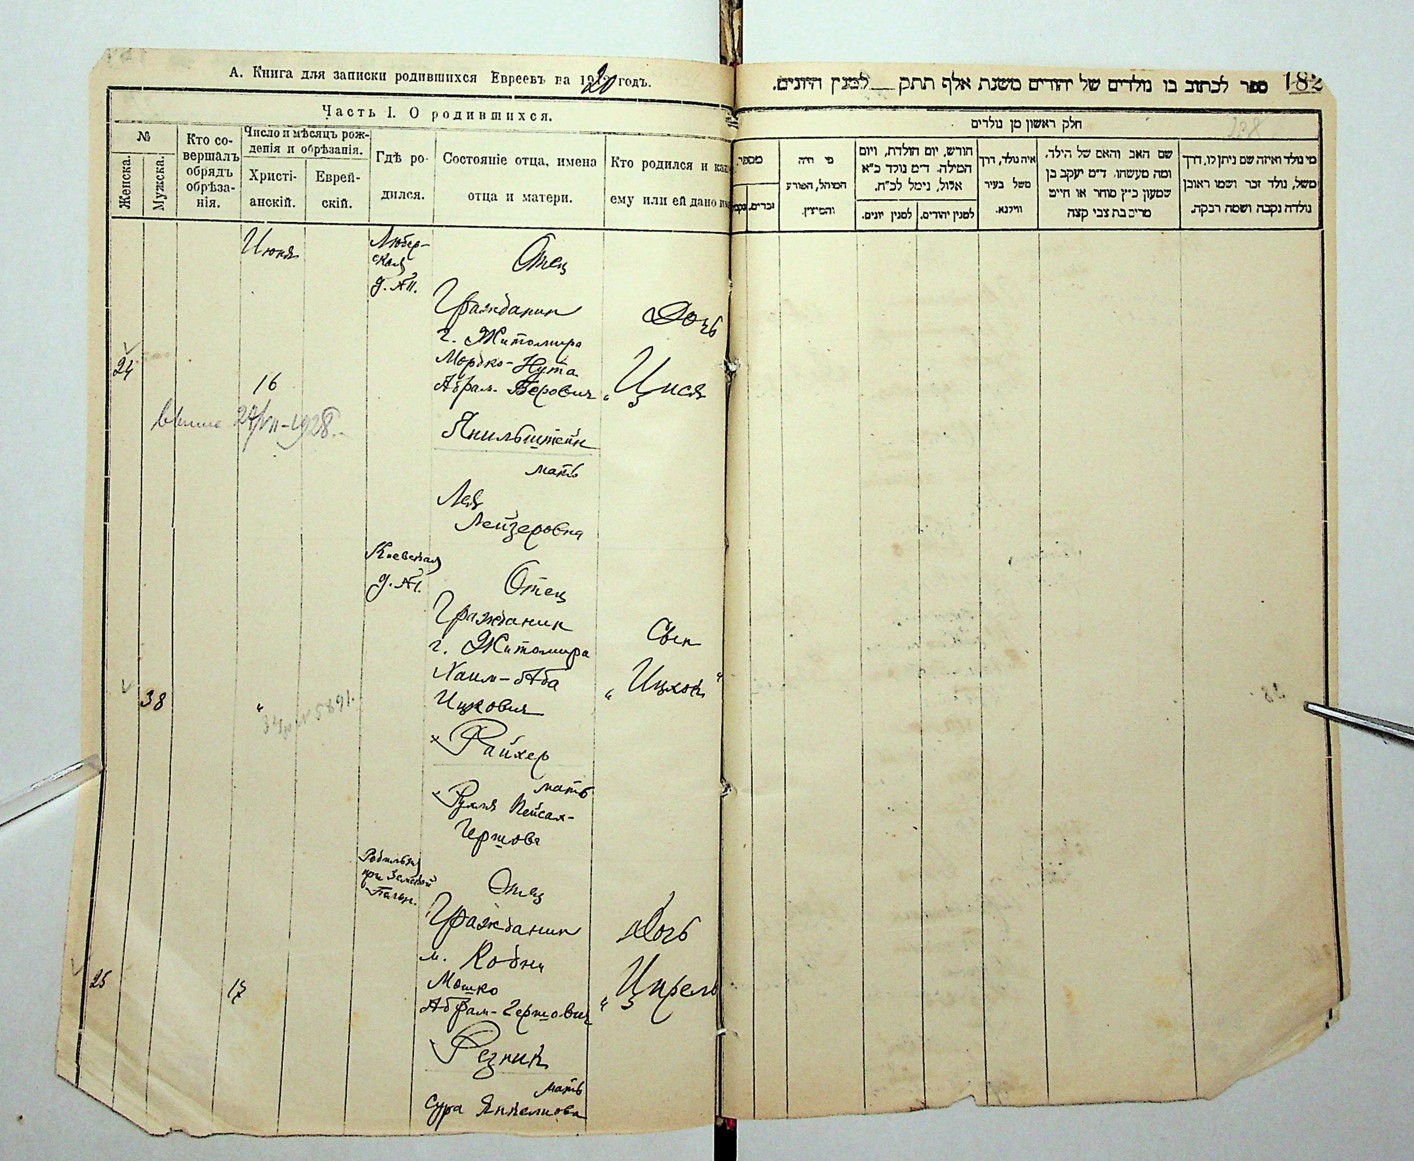 А. Книга для записки родившихся Евреевъ на 1920 годъ.
Часть I. О родившихся.
№
Женска.
Мужска.
Кто со-
вершалъ
обрядъ
обрѣза-
нія.
Число и мѣсяцъ рож-
денія и обрѣзанія.
Христі-
анскій.
Еврей-
скій.
Гдѣ ро-
дился.
Состояніе отца, имена
отца и матери.
Кто родился и как
ему или ей дано им
Июня
д. №11.
24
16
Отец
Гражданин
г. Житомира
Мордко-Нута
Абрам-Берович
мать
Лея
Лейзеровна
Дочь
"Цися
24/VII-1928
38
"
Киевская
д. №1.
Отец
Гражданин
г. Житомира
Хаим-Аба
Ицкович
Райхер
мать
Рухля Пейсах-
Гершова
Сын
"Ицхок"
25
17
Родильня
при Земской
больн.
Отец
Гражданин
м. Кодни
Мошко
Абрам-Гершович
Резник
мать
Сура Янкелиова
Дочь
"Цирель
182
ספר לכתוב בו נולדים של יהודים משנת אלף תתק__למנין היונים.
חלק ראשון מן נולדים
מספר.
זכרים.
מי היה
המוהל, הפורע
והמוצץ.
חודש, יום הולדת, ויום
המילה. ד״מ נולד כ״א
אלול, נימל לכ״ח.
למנין יונים.
למנין יהודים.
איה נולד, דרך
משל בעיר
ווילנא.
שם האב והאם של הילד,
ומה מעשהו. ד״מ יעקב בן
שמעון כ״ץ סוחר או חיים
מרים בת צבי קצה
מי נולד ואיזה שם ניתן לו, דרך
משל, נולד זכר ושמו ראובן
נולדה נקבה ושמה רבקה.